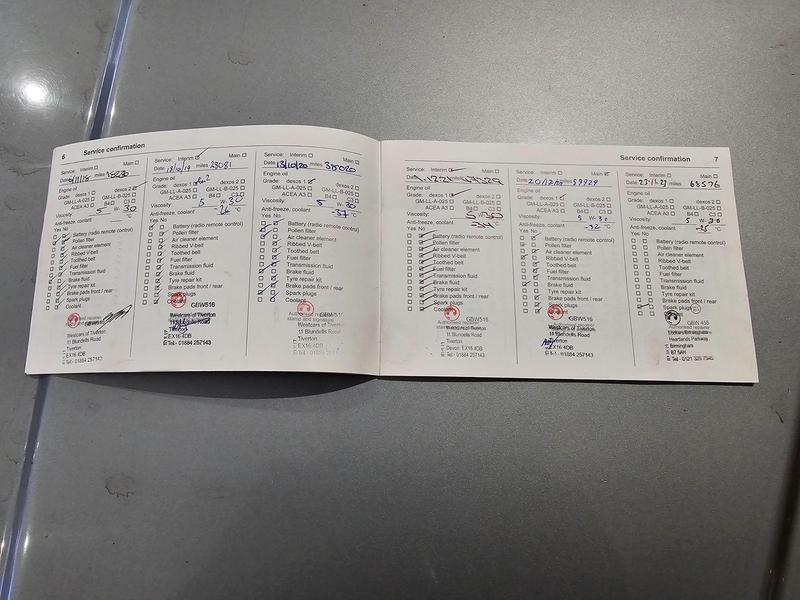 6 Service confirmation
Service: Interim Main
Date 6/11/18 miles
Engine oil
Grade: dexos 1 dexos 2
GM-LL-A-025 GM-LL-B-025
ACEA A3 B4 C3
Viscosity: 5 W- 30
Anti-freeze, coolant °C
Yes No
Battery (radio remote control)
Pollen filter
Air cleaner element
Ribbed V-belt
Toothed belt
Fuel filter
Transmission fluid
Brake fluid
Tyre repair kit
Brake pads front / rear
Spark plugs
Coolant
GBW516
Westcars of Tiverton
11 Blundells Road
Tiverton
EX16 4DB
Tel - 01884 257143
Service: Interim Main
Date miles 23081
Engine oil
Grade: dexos 1 dexos 2
GM-LL-A-025 GM-LL-B-025
ACEA A3 B4 C3
Viscosity: 5 W- 30
Anti-freeze, coolant -26 °C
Yes No
Battery (radio remote control)
Pollen filter
Air cleaner element
Ribbed V-belt
Toothed belt
Fuel filter
Transmission fluid
Brake fluid
Tyre repair kit
Brake pads front / rear
Spark plugs
Coolant
GBW516
Westcars of Tiverton
11 Blundells Road
Tiverton
EX16 4DB
Tel - 01884 257143
Service: Interim Main
Date 13/10/20 miles
Engine oil
Grade: dexos 1 dexos 2
GM-LL-A-025 GM-LL-B-025
ACEA A3 B4 C3
Viscosity: 5 W- 30
Anti-freeze, coolant -37 °C
Yes No
Battery (radio remote control)
Pollen filter
Air cleaner element
Ribbed V-belt
Toothed belt
Fuel filter
Transmission fluid
Brake fluid
Tyre repair kit
Brake pads front / rear
Spark plugs
Coolant
Authorised repairer
stamp and signature
Westcars of Tiverton
11 Blundells Road
Tiverton
EX16 4DB
Tel - 01884 257143
Service confirmation 7
Service: Interim Main
Date miles
Engine oil
Grade: dexos 1 dexos 2
GM-LL-A-025 GM-LL-B-025
ACEA A3 B4 C3
Viscosity: 5 W- 30
Anti-freeze, coolant °C
Yes No
Battery (radio remote control)
Pollen filter
Air cleaner element
Ribbed V-belt
Toothed belt
Fuel filter
Transmission fluid
Brake fluid
Tyre repair kit
Brake pads front / rear
Spark plugs
Coolant
GBW516
Westcars of Tiverton
11 Blundells Road
Tiverton
Devon EX16 4DB
Tel - 01884 257143
Service: Interim Main
Date miles 59929
Engine oil
Grade: dexos 1 dexos 2
GM-LL-A-025 GM-LL-B-025
ACEA A3 B4 C3
Viscosity: 5 W- 30
Anti-freeze, coolant -32 °C
Yes No
Battery (radio remote control)
Pollen filter
Air cleaner element
Ribbed V-belt
Toothed belt
Fuel filter
Transmission fluid
Brake fluid
Tyre repair kit
Brake pads front / rear
Spark plugs
Coolant
GBW516
Westcars of Tiverton
11 Blundells Road
Tiverton
EX16 4DB
Tel - 01884 257143
Service: Interim Main
Date 23-11-23 miles 68576
Engine oil
Grade: dexos 1 dexos 2
GM-LL-A-025 GM-LL-B-025
ACEA A3 B4 C3
Viscosity: 5 W- 30
Anti-freeze, coolant -35 °C
Yes No
Battery (radio remote control)
Pollen filter
Air cleaner element
Ribbed V-belt
Toothed belt
Fuel filter
Transmission fluid
Brake fluid
Tyre repair kit
Brake pads front / rear
Spark plugs
Coolant
Authorised repairer
Heartlands Parkway
Birmingham
B7 5AH